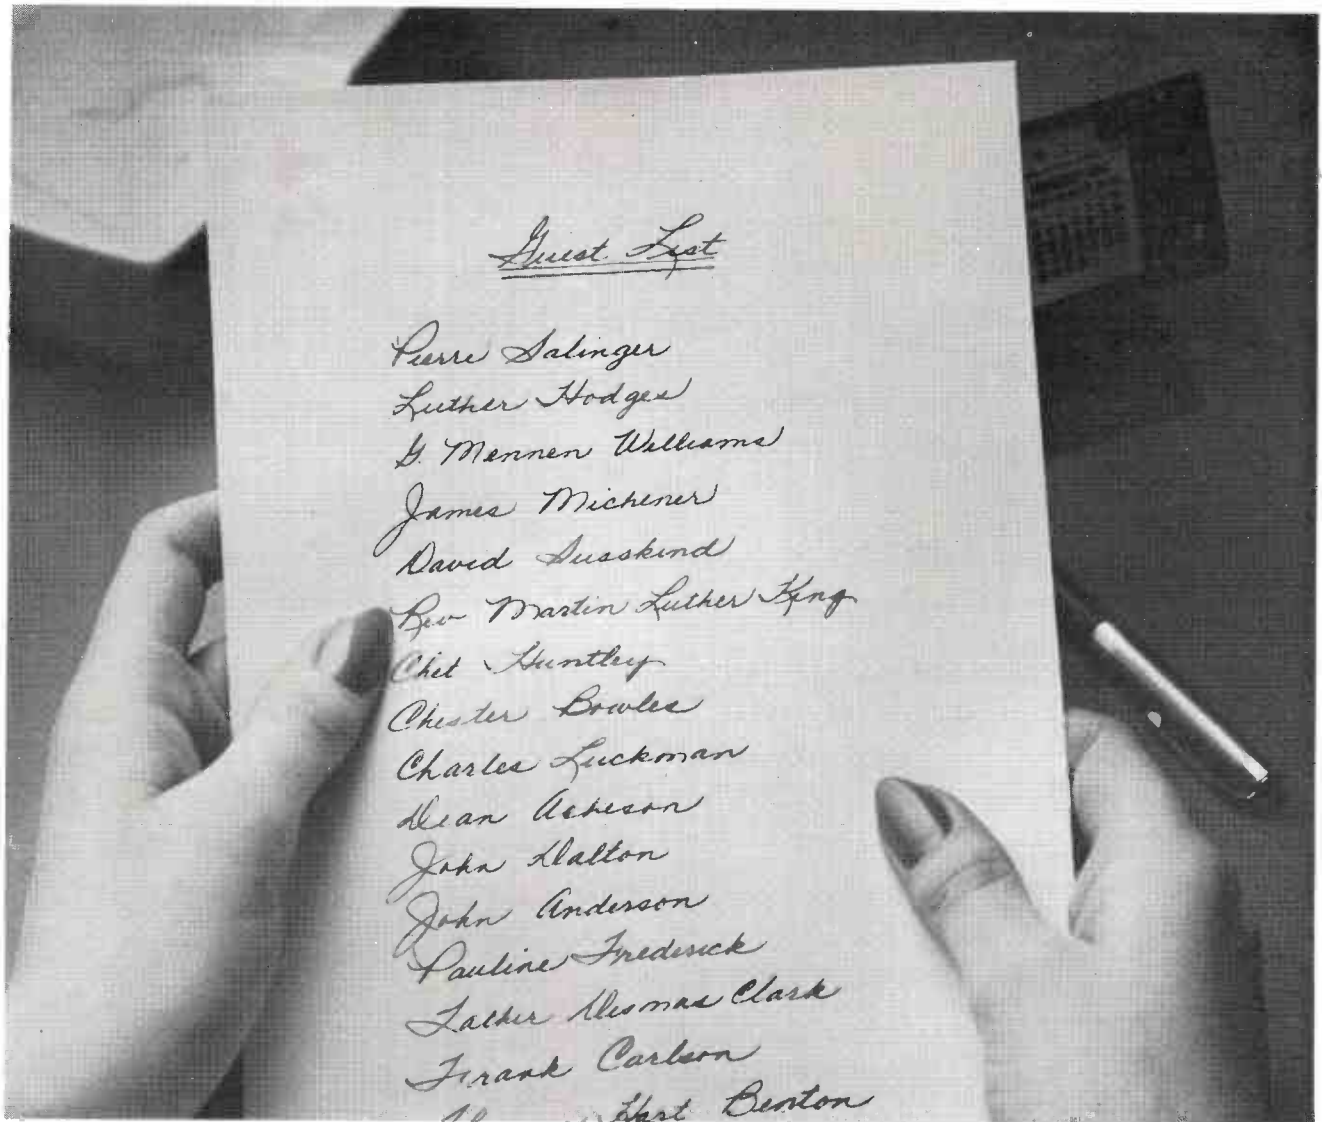 Guest List
Pierre Salinger
Luther Hodges
G. Mennen Williams
James Michener
David Susskind
Rev Martin Luther King
Chet Huntley
Chester Bowles
Charles Luckman
Dean Acheson
John Dalton
John Anderson
Pauline Frederick
Father Dismas Clark
Frank Carlson
Hart Benton